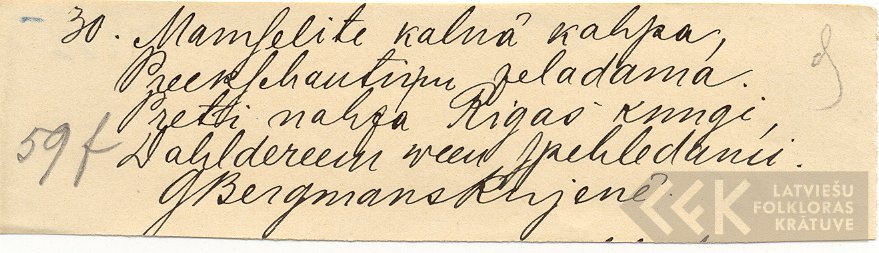 30. Mamselite kalnâ kahpa,
Preekschautiņu zeladama.
Pretti nahza Rigas kungi,
Dahldereem ween spehledami.
GBergmans Rujenê.
59f
LATVIEŠU
FOLKLORAS
KRĀTUVE